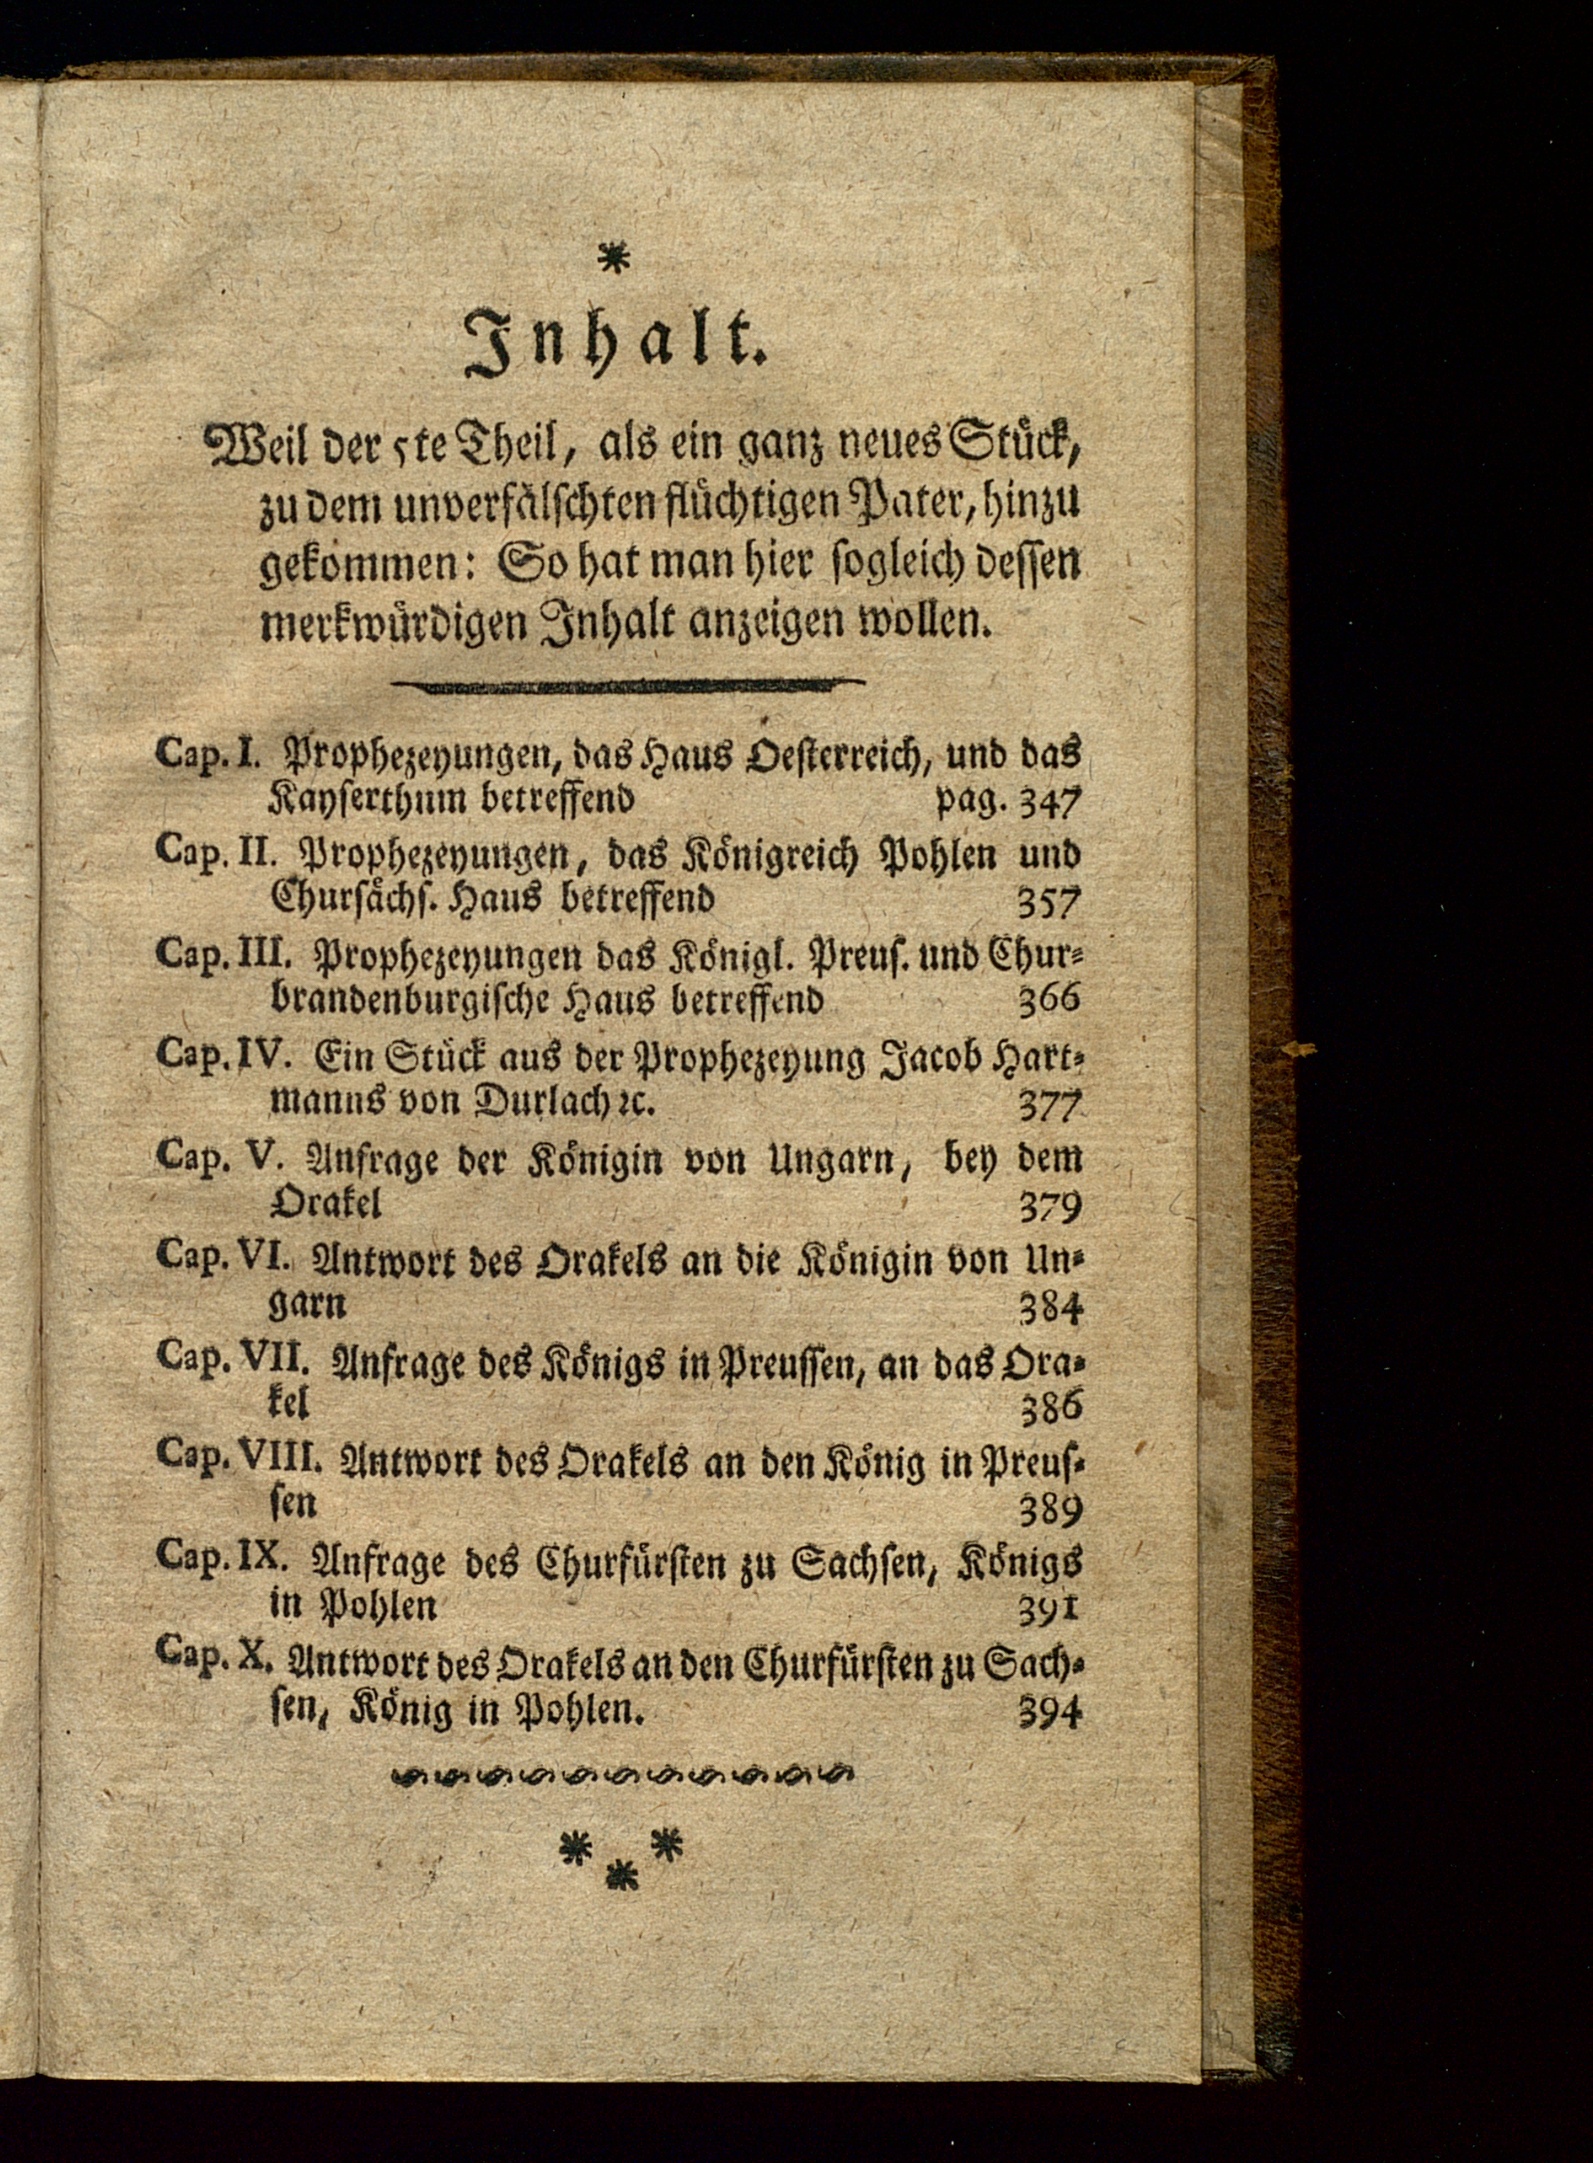 *
Inhalt.
Weil der 5te Theil, als ein ganz neues Stück,
zu dem unverfälschten flüchtigen Pater, hinzu
gekommen: So hat man hier sogleich dessen
merkwürdigen Inhalt anzeigen wollen.
Cap. I. Prophezeyungen, das Haus Oesterreich, und das
Kayserthum betreffend pag. 347
Cap. II. Prophezeyungen, das Königreich Pohlen und
Chursächs. Haus betreffend 357
Cap. III. Prophezeyungen das Königl. Preus. und Chur-
brandenburgische Haus betreffend 366
Cap. IV. Ein Stück aus der Prophezeyung Jacob Hart-
manns von Durlach ꝛc. 377
Cap. V. Anfrage der Königin von Ungarn, bey dem
Orakel 379
Cap. VI. Antwort des Orakels an die Königin von Un-
garn 384
Cap. VII. Anfrage des Königs in Preussen, an das Ora-
kel 386
Cap. VIII. Antwort des Orakels an den König in Preus-
sen 389
Cap. IX. Anfrage des Churfürsten zu Sachsen, Königs
in Pohlen 391
Cap. X. Antwort des Orakels an den Churfürsten zu Sach-
sen, König in Pohlen. 394
* * *